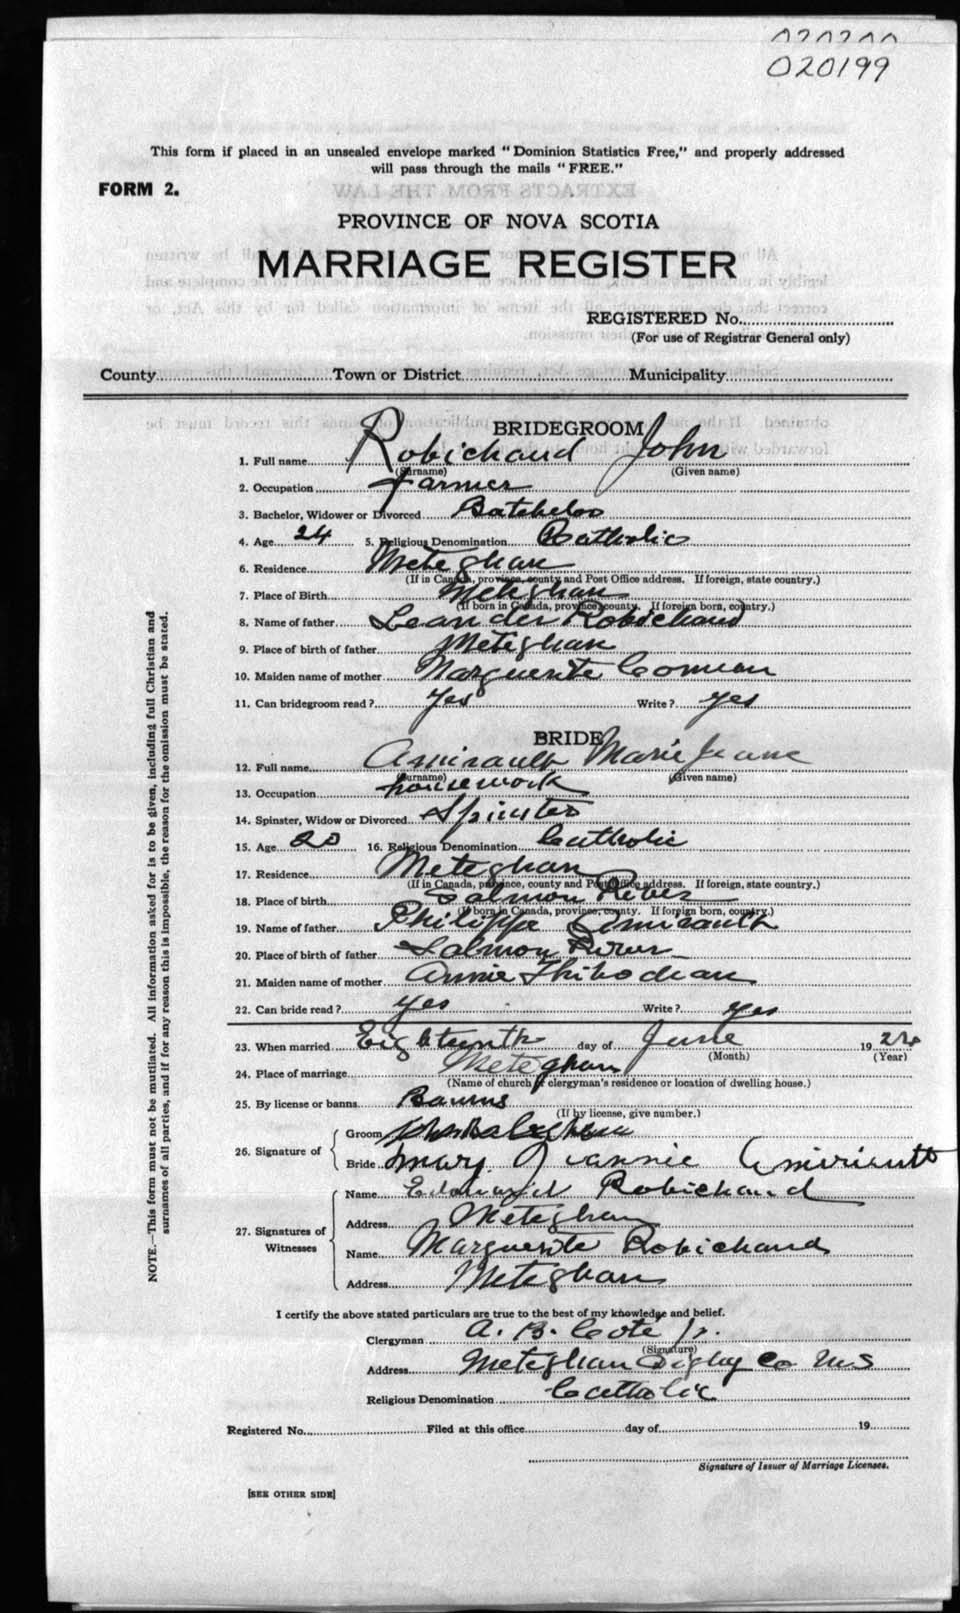 020199
This form if placed in an unsealed envelope marked "Dominion Statistics Free," and properly addressed
will pass through the mails "FREE."
FORM 2.
PROVINCE OF NOVA SCOTIA
MARRIAGE REGISTER
REGISTERED No.
(For use of Registrar General only)
County Town or District Municipality
BRIDEGROOM
1. Full name Robichaud John
(Surname) (Given name)
2. Occupation farmer
3. Bachelor, Widower or Divorced Batchelor
4. Age 24 5. Religious Denomination Catholic
6. Residence Meteghan
(If in Canada, province, county and Post Office address. If foreign, state country.)
7. Place of Birth Meteghan
(If born in Canada, province, county. If foreign born, country.)
8. Name of father Leander Robichaud
9. Place of birth of father Meteghan
10. Maiden name of mother Marguerite Comeau
11. Can bridegroom read? Yes Write? yes
BRIDE
12. Full name Amirault Marie Jeanne
(Surname) (Given name)
13. Occupation housework
14. Spinster, Widow or Divorced Spinster
15. Age 20 16. Religious Denomination Catholic
17. Residence Meteghan
(If in Canada, province, county and Post Office address. If foreign, state country.)
18. Place of birth Salmon River
(If born in Canada, province, county. If foreign born, country.)
19. Name of father Philippe Amirault
20. Place of birth of father Salmon River
21. Maiden name of mother Annie Thibodeau
22. Can bride read? yes Write? yes
23. When married Eighteenth day of June 19
(Month) (Year)
24. Place of marriage Meteghan
(Name of church or clergyman's residence or location of dwelling house.)
25. By license or banns Banns
(If by license, give number.)
26. Signature of
Groom
Bride mary Jeannie Amirault
27. Signatures of Witnesses
Name Edward Robichaud
Address Meteghan
Name Marguerite Robichaud
Address Meteghan
I certify the above stated particulars are true to the best of my knowledge and belief.
Clergyman A. B. Cote Jr.
(Signature)
Address Meteghan Digby Co N S
Religious Denomination Catholic
Registered No. Filed at this office day of 19
Signature of Issuer of Marriage Licenses.
[SEE OTHER SIDE]
NOTE.—This form must not be mutilated. All information asked for is to be given, including full Christian and
surnames of all parties, and if for any reason this is impossible, the reason for the omission must be stated.